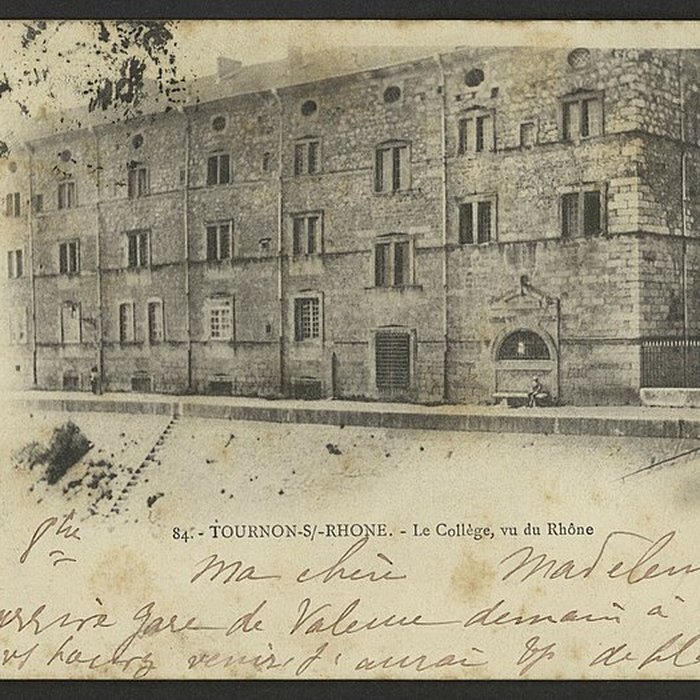 84. - TOURNON-S/-RHONE. - Le Collège, vu du Rhône
8 hre
Ma chère Madelein
arrivra gare de Valence demain à
venir, J'aurai de pl